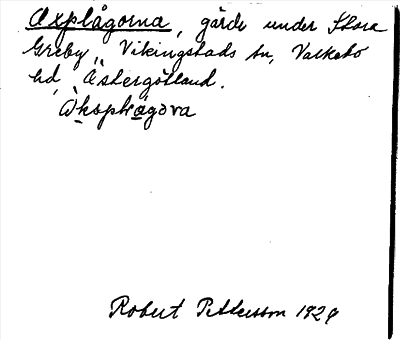 Axplågorna, gärde under Stora
Greby, Vikingstads sn, Valkebo
hd, Östergötland.
Akspluågora
Robert Pettersson 1929